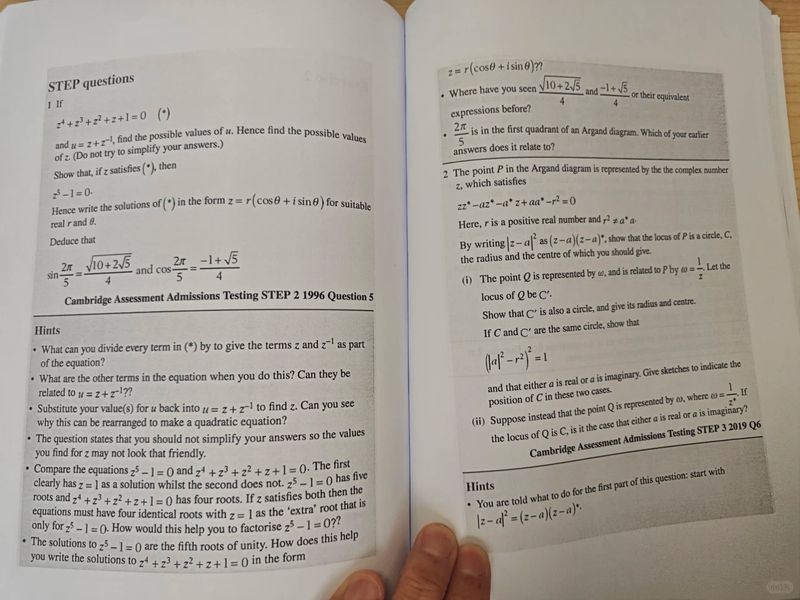 STEP questions
1 If
z⁴ + z³ + z² + z + 1 = 0 (*)
and u = z + z⁻¹, find the possible values of u. Hence find the possible values
of z. (Do not try to simplify your answers.)
Show that, if z satisfies (*), then
z⁵ − 1 = 0.
Hence write the solutions of (*) in the form z = r(cosθ + i sinθ) for suitable
real r and θ.
Deduce that
sin 2π/5 = √(10+2√5)/4 and cos 2π/5 = (−1+√5)/4
Cambridge Assessment Admissions Testing STEP 2 1996 Question 5
Hints
• What can you divide every term in (*) by to give the terms z and z⁻¹ as part
of the equation?
• What are the other terms in the equation when you do this? Can they be
related to u = z + z⁻¹??
• Substitute your value(s) for u back into u = z + z⁻¹ to find z. Can you see
why this can be rearranged to make a quadratic equation?
• The question states that you should not simplify your answers so the values
you find for z may not look that friendly.
• Compare the equations z⁵ − 1 = 0 and z⁴ + z³ + z² + z + 1 = 0. The first
clearly has z = 1 as a solution whilst the second does not. z⁵ − 1 = 0 has five
roots and z⁴ + z³ + z² + z + 1 = 0 has four roots. If z satisfies both then the
equations must have four identical roots with z = 1 as the 'extra' root that is
only for z⁵ − 1 = 0. How would this help you to factorise z⁵ − 1 = 0??
• The solutions to z⁵ − 1 = 0 are the fifth roots of unity. How does this help
you write the solutions to z⁴ + z³ + z² + z + 1 = 0 in the form
z = r(cosθ + i sinθ)??
• Where have you seen √(10+2√5)/4 and (−1+√5)/4 or their equivalent
expressions before?
• 2π/5 is in the first quadrant of an Argand diagram. Which of your earlier
answers does it relate to?
2 The point P in the Argand diagram is represented by the the complex number
z, which satisfies
zz* − az* − a*z + aa* − r² = 0
Here, r is a positive real number and r² ≠ a*a.
By writing |z − a|² as (z − a)(z − a)*, show that the locus of P is a circle, C,
the radius and the centre of which you should give.
(i) The point Q is represented by ω, and is related to P by ω = 1/z. Let the
locus of Q be C′.
Show that C′ is also a circle, and give its radius and centre.
If C and C′ are the same circle, show that
(|a|² − r²)² = 1
and that either a is real or a is imaginary. Give sketches to indicate the
position of C in these two cases.
(ii) Suppose instead that the point Q is represented by ω, where ω = 1/z*. If
the locus of Q is C, is it the case that either a is real or a is imaginary?
Cambridge Assessment Admissions Testing STEP 3 2019 Q6
Hints
• You are told what to do for the first part of this question: start with
|z − a|² = (z − a)(z − a)*.